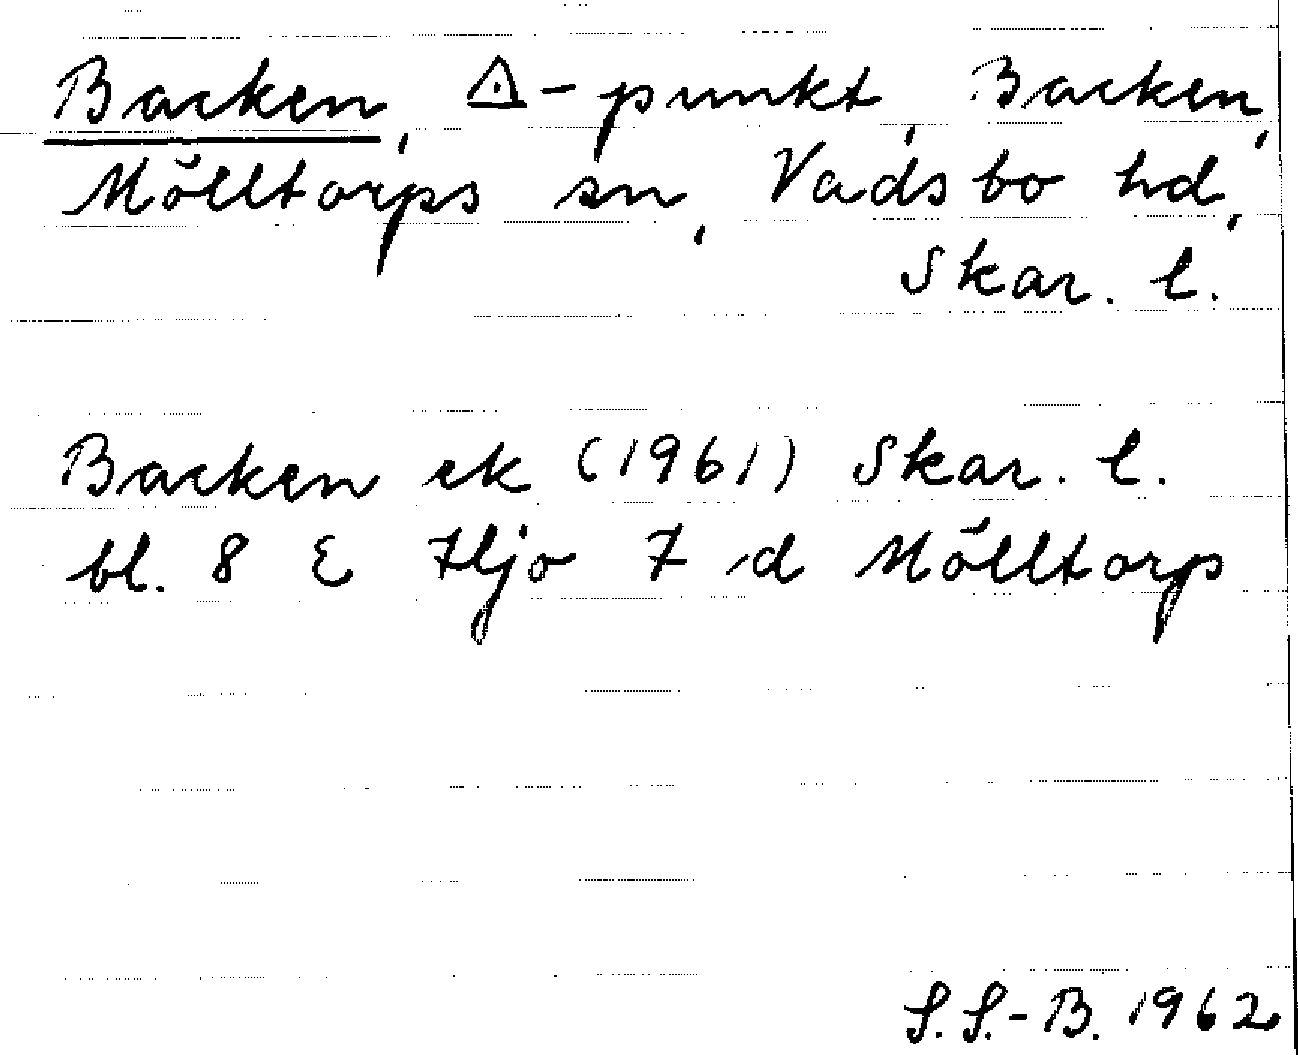 Backen, △-punkt, Backen,
Mölltorps sn, Vadsbo hd,
Skar. l.
Backen ek (1961) Skar. l.
bl. 8 E Hjo 7 d Mölltorp
S.S.-B. 1962